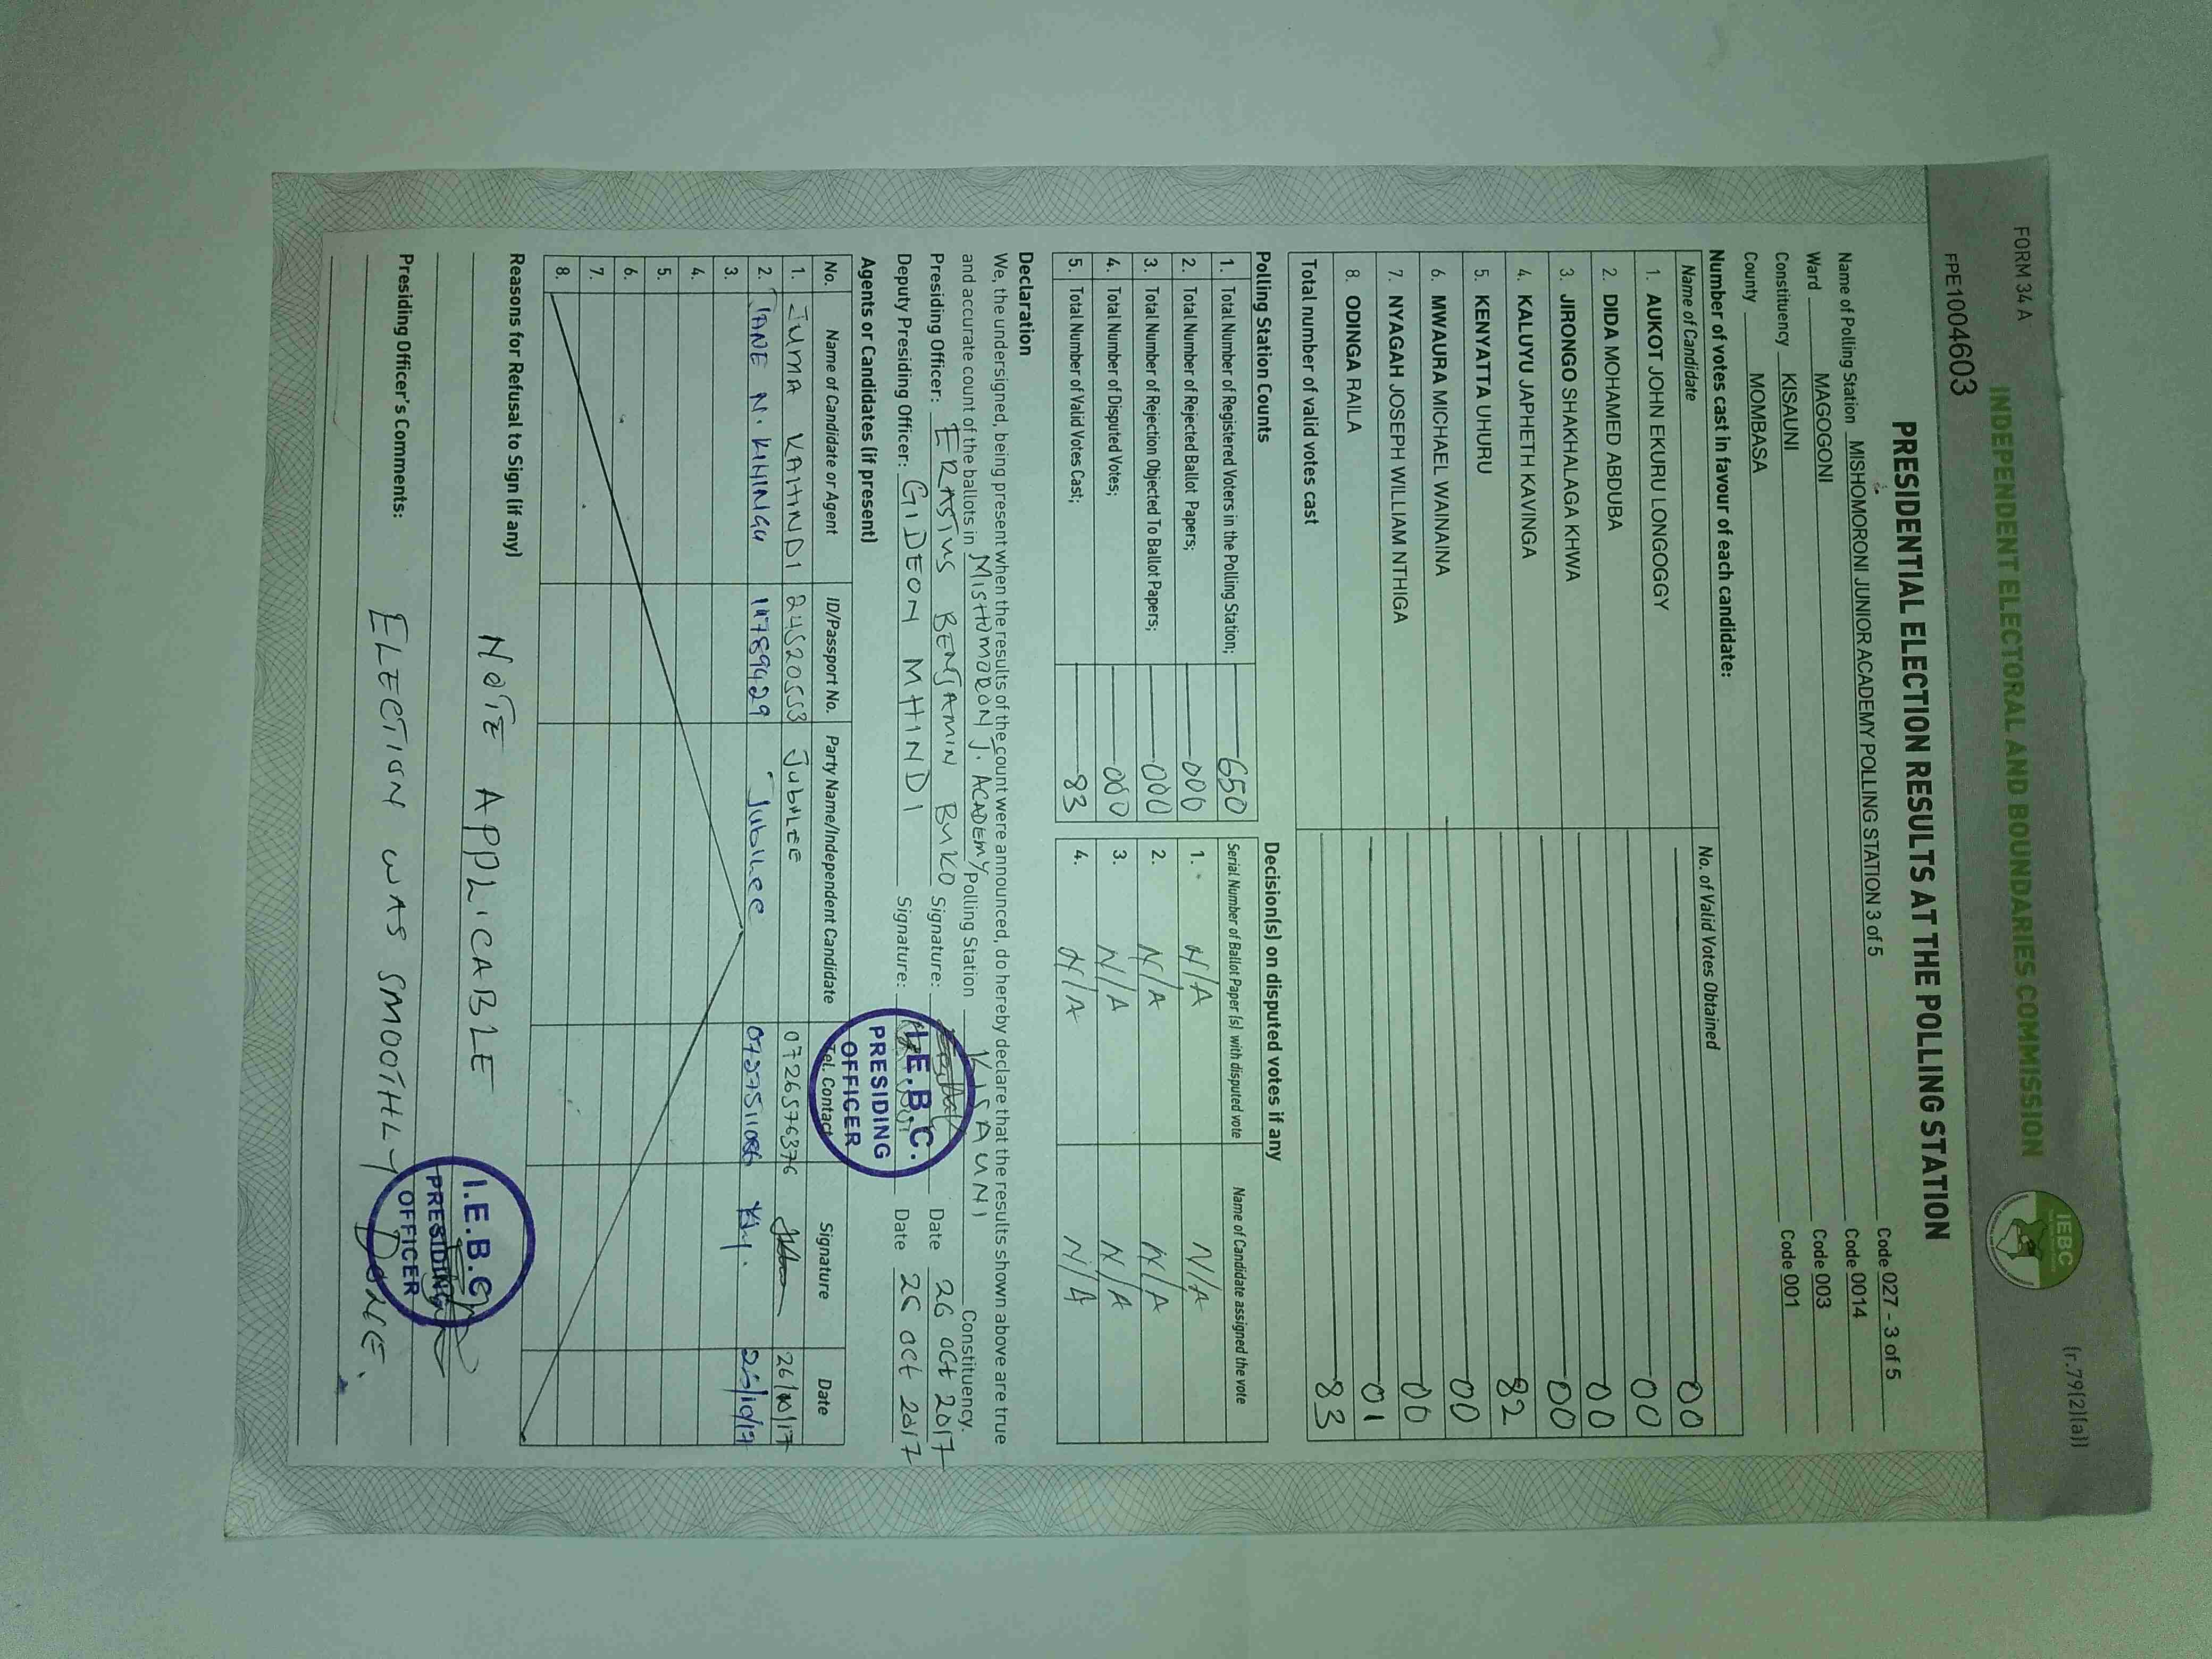 FORM 34 A
(r.79(2)(a))
INDEPENDENT ELECTORAL AND BOUNDARIES COMMISSION
IEBC
FPE1004603
PRESIDENTIAL ELECTION RESULTS AT THE POLLING STATION
Name of Polling Station MISHOMORONI JUNIOR ACADEMY POLLING STATION 3 of 5 Code 027 - 3 of 5
Ward MAGOGONI Code 0014
Constituency KISAUNI Code 003
County MOMBASA Code 001
Number of votes cast in favour of each candidate:
Name of Candidate No. of Valid Votes Obtained
1. AUKOT JOHN EKURU LONGOGGY 00
2. DIDA MOHAMED ABDUBA 00
3. JIRONGO SHAKHALAGA KHWA 00
4. KALUYU JAPHETH KAVINGA 00
5. KENYATTA UHURU 82
6. MWAURA MICHAEL WAINAINA 00
7. NYAGAH JOSEPH WILLIAM NTHIGA 00
8. ODINGA RAILA 01
Total number of valid votes cast 83
Polling Station Counts
1. Total Number of Registered Voters in the Polling Station; 650
2. Total Number of Rejected Ballot Papers; 000
3. Total Number of Rejection Objected To Ballot Papers; 000
4. Total Number of Disputed Votes; 000
5. Total Number of Valid Votes Cast; 83
Decision(s) on disputed votes if any
Serial Number of Ballot Paper (s) with disputed vote Name of Candidate assigned the vote
1. N/A N/A
2. N/A N/A
3. N/A N/A
4. N/A N/A
Declaration
We, the undersigned, being present when the results of the count were announced, do hereby declare that the results shown above are true
and accurate count of the ballots in MISHOMORONI J. ACADEMY Polling Station KISAUNI Constituency.
Presiding Officer: ERASTUS BENJAMIN BUKO Signature: Date 26 OCT 2017
Deputy Presiding Officer: GIDEON MHINDI Signature: Date 26 OCT 2017
I.E.B.C.
PRESIDING
OFFICER
Agents or Candidates (if present)
No. Name of Candidate or Agent ID/Passport No. Party Name/Independent Candidate Tel. Contact Signature Date
1. JUMA KAHINDI 24520553 JUBILEE 0726576376 26/10/17
2. JANE N. KIHINGU 11789429 Jubilee 26/10/17
3.
4.
5.
6.
7.
8.
Reasons for Refusal to Sign (if any)
NOTE APPLICABLE
Presiding Officer's Comments:
ELECTION WAS SMOOTHLY DONE.
I.E.B.C.
PRESIDING
OFFICER